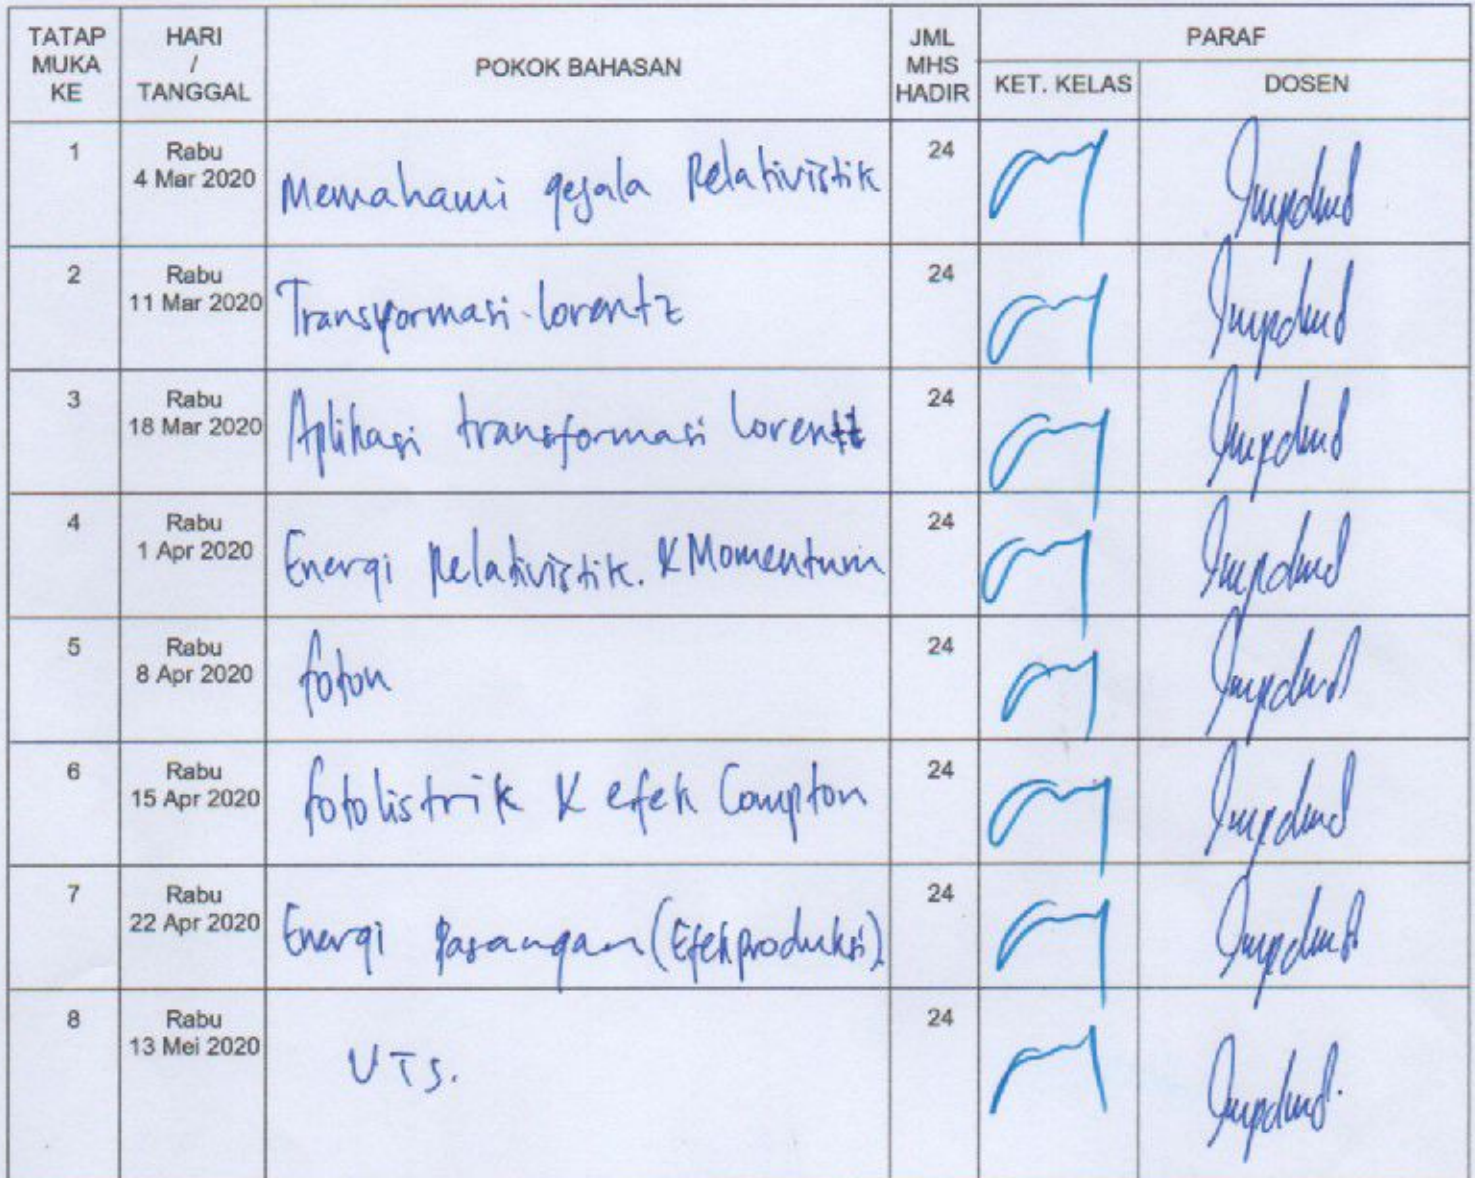 TATAP MUKA KE HARI / TANGGAL POKOK BAHASAN JML MHS HADIR PARAF
KET. KELAS DOSEN
1 Rabu 4 Mar 2020 Memahami gejala Relativistik 24
2 Rabu 11 Mar 2020 Transformasi Lorentz 24
3 Rabu 18 Mar 2020 Aplikasi transformasi Lorentz 24
4 Rabu 1 Apr 2020 Energi Relativistik. & Momentum 24
5 Rabu 8 Apr 2020 foton 24
6 Rabu 15 Apr 2020 fotolistrik & efek Compton 24
7 Rabu 22 Apr 2020 Energi Pasangan (Efek produksi) 24
8 Rabu 13 Mei 2020 UTS. 24